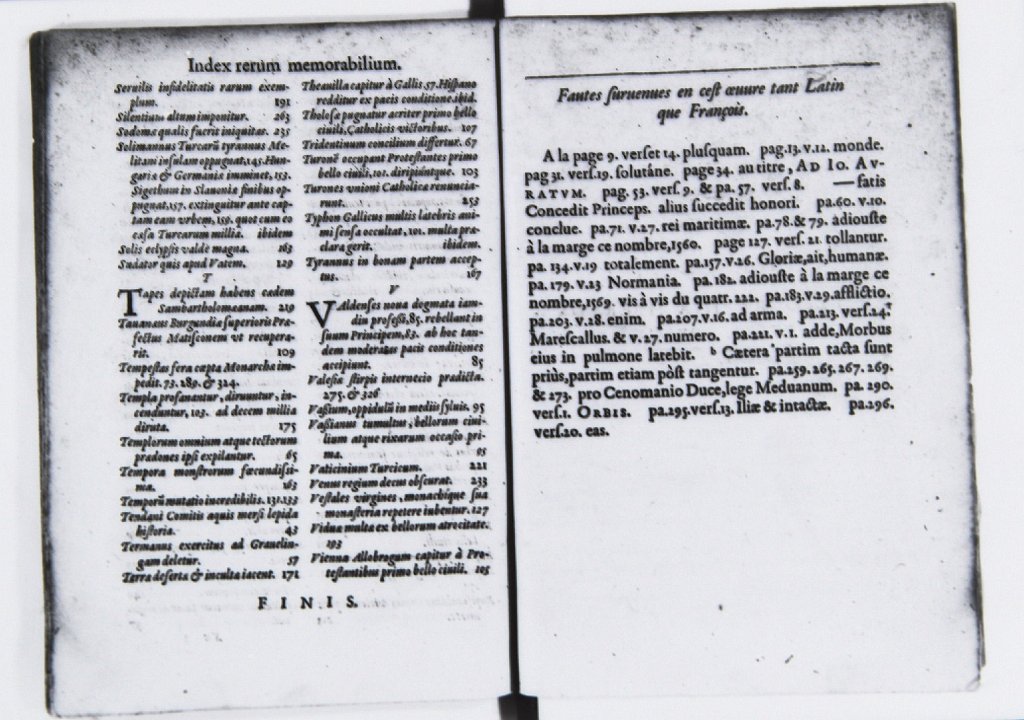 Index rerum memorabilium.
Seruilis infidelitatis rarum exem-
plum. 191
Silentium altum imponitur. 263
Sodoma qualis fuerit iniquitas. 235
Solimannus Turcarū tyrannus Me-
litam insulam oppugnat, 145. Hun-
gariæ & Germaniæ imminet, 153.
Sigethum in Slauonia finibus op-
pugnat, 157. extinguitur ante cap-
tam eam vrbem, 159. quot cum eo
cæsa Turcarum millia. ibidem
Solis eclypsis valde magna. 163
Sudator quis apud Vatem. 129
T
Tapes depictam habens cædem
Sambartholomæanam. 219
Tauanus Burgundiæ superioris Præ-
fectus Matisconem vt recupera-
rit. 109
Tempestas fera cœpta Monarcha im-
pedit. 73. 189. & 324.
Templa profanantur, diruuntur, in-
cenduntur, 103. ad decem millia
diruta. 175
Templorum omnium atque tectorum
prædones ipsi expilantur. 65
Tempora monstrorum fœcundissi-
ma. 163
Temporū mutatio incredibilis. 131.133
Tendani Comitis aquis mersi lepida
historia. 43
Termanus exercitus ad Grauelin-
gam deletur. 57
Terra deserta & inculta iacent. 171
Theauilla capitur à Gallis 57. Hispano
redditur ex pacis conditione. ibid.
Tholosæ pugnatur acriter primo bello
ciuili, Catholicis victoribus. 107
Tridentinum concilium differtur. 67
Turonē occupant Protestantes primo
bello ciuili, 101. diripiúntque. 103
Turones vnioni Catholicæ renuncia-
runt. 253
Typhon Gallicus multis latebris ani-
mi sensa occultat, 101. multa præ-
clara gerit. ibidem.
Tyrannus in bonam partem accep-
tus. 167
V
Valdenses noua dogmata iam-
diu professi, 85. rebellant in
suum Principem, 83. ab hoc tan-
dem moderatas pacis conditiones
accipiunt. 85
Valesiæ stirpis internecio prædicta.
275. & 326
Vassium, oppidulū in mediis syluis. 95
Vassianus tumultus, bellorum ciui-
lium atque rixarum occasio pri-
ma. 95
Vaticinium Turcicum. 221
Venus regium decus obscurat. 233
Vestales virgines, monachique sua
monasteria repetere iubentur. 127
Viduæ multæ ex bellorum atrocitate.
193
Vienna Allobrogum capitur à Pro-
testantibus primo bello ciuili. 105
FINIS.
Fautes suruenues en cest œuure tant Latin
que François.
A la page 9. verset 14. plusquam. pag. 13. v. 12. monde.
pag 31. vers. 19. solutāne. page 34. au titre, AD IO. AV-
RATVM. pag. 53. vers. 9. & pa. 57. vers. 8. — fatis
Concedit Princeps. alius succedit honori. pa. 60. v. 10.
conclue. pa. 71. v. 27. rei maritimæ. pa. 78. & 79. adiouste
à la marge ce nombre, 1560. page 127. vers. 21. tollantur.
pa. 134. v. 19 totalement. pa. 157. v. 26. Gloriæ, ait, humanæ.
pa. 179. v. 23 Normania. pa. 182. adiouste à la marge ce
nombre, 1569. vis à vis du quatr. 222. pa. 183. v. 29. afflictio.
pa. 203. v. 28. enim. pa. 207. v. 16. ad arma. pa. 213. vers. 24.
Marescallus. & v. 27. numero. pa. 221. v. 1. adde, Morbus
eius in pulmone latebit. b Cætera partim tacta sunt
priùs, partim etiam pòst tangentur. pa. 259. 265. 267. 269.
& 273. pro Cenomanio Duce, lege Meduanum. pa. 290.
vers. 1. ORBIS. pa. 295. vers. 13. Illiæ & intactæ. pa. 296.
vers. 20. eas.